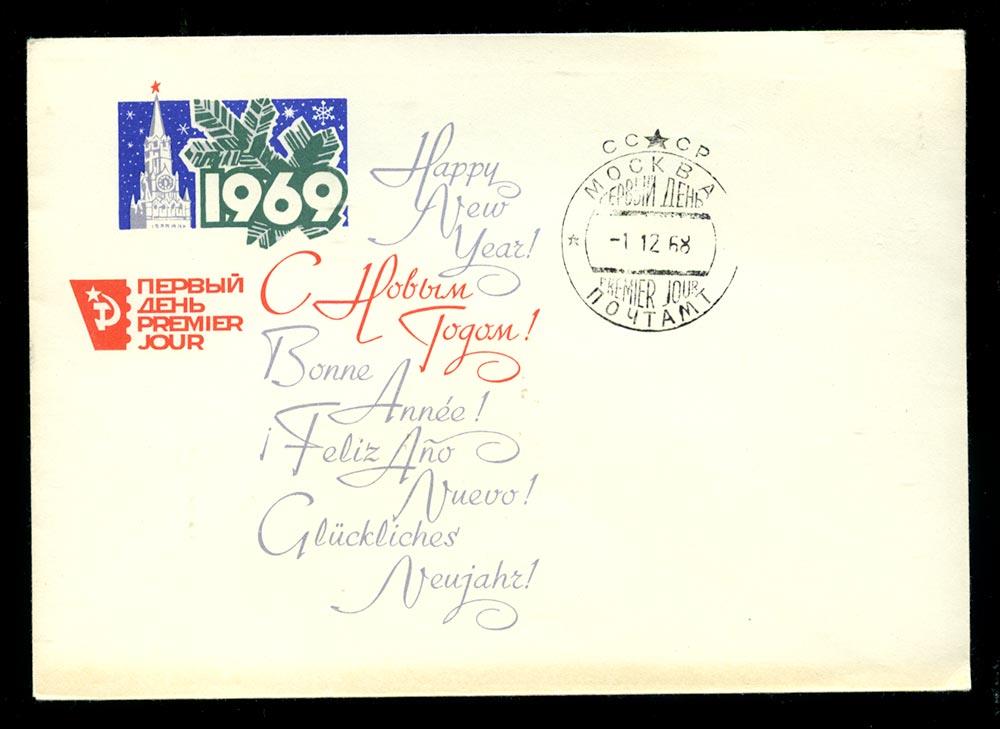 1969
Happy
New
Year!
С Новым
Годом!
Bonne
Année!
¡Feliz Año
Nuevo!
Glückliches
Neujahr!
ПЕРВЫЙ
ДЕНЬ
PREMIER
JOUR
СССР
МОСКВА
ПЕРВЫЙ ДЕНЬ
-1 12 68
PREMIER JOUR
ПОЧТАМТ